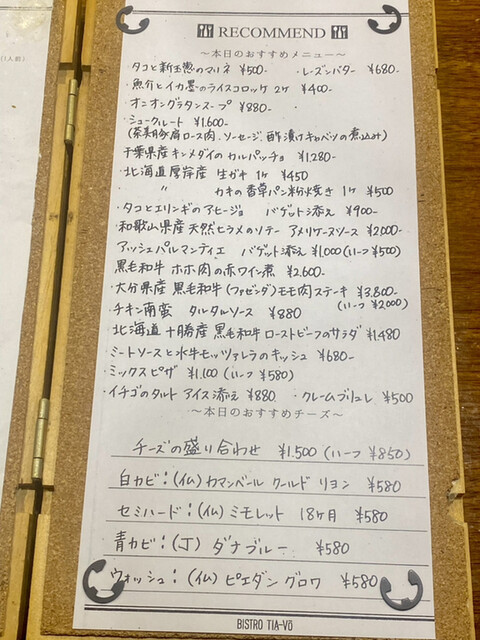 RECOMMEND
〜本日のおすすめメニュー〜
・タコと新玉葱のマリネ ¥500- ・レーズンバター ¥680-
・魚介とイカ墨のライスコロッケ 2ヶ ¥400-
・オニオングラタンスープ ¥880-
・シュークルート ¥1.600-
(茶美豚肩ロース肉、ソーセージ、酢漬けキャベツの煮込み)
・千葉県産キンメダイのカルパッチョ ¥1,280-
・北海道厚岸産 生ガキ 1ヶ ¥450
〃 カキの香草パン粉焼き 1ヶ ¥500
・タコとエリンギのアヒージョ バゲット添え ¥900-
・和歌山県産 天然ヒラメのソテー アメリケーヌソース ¥2,000-
・アッシェパルマンティエ バゲット添え ¥1,000 (ハーフ ¥500)
・黒毛和牛 ホホ肉の赤ワイン煮 ¥2.600-
・大分県産 黒毛和牛(ファゼンダ)モモ肉ステーキ ¥3,800-
(ハーフ ¥2,000)
・チキン南蛮 タルタルソース ¥880
・北海道 十勝産 黒毛和牛 ローストビーフのサラダ ¥1,480
・ミートソースと水牛モッツァレラのキッシュ ¥680-
・ミックスピザ ¥1,100 (ハーフ ¥580)
・イチゴのタルト アイス添え ¥880 ・クレームブリュレ ¥500
〜本日のおすすめチーズ〜
チーズの盛り合わせ ¥1,500 (ハーフ ¥850)
白カビ:(仏)カマンベール クールド リヨン ¥580
セミハード:(仏)ミモレット 18ヶ月 ¥580
青カビ:(丁) ダナブルー ¥580
ウォッシュ:(仏)ピエダングロワ ¥580
BISTRO TIA-VO